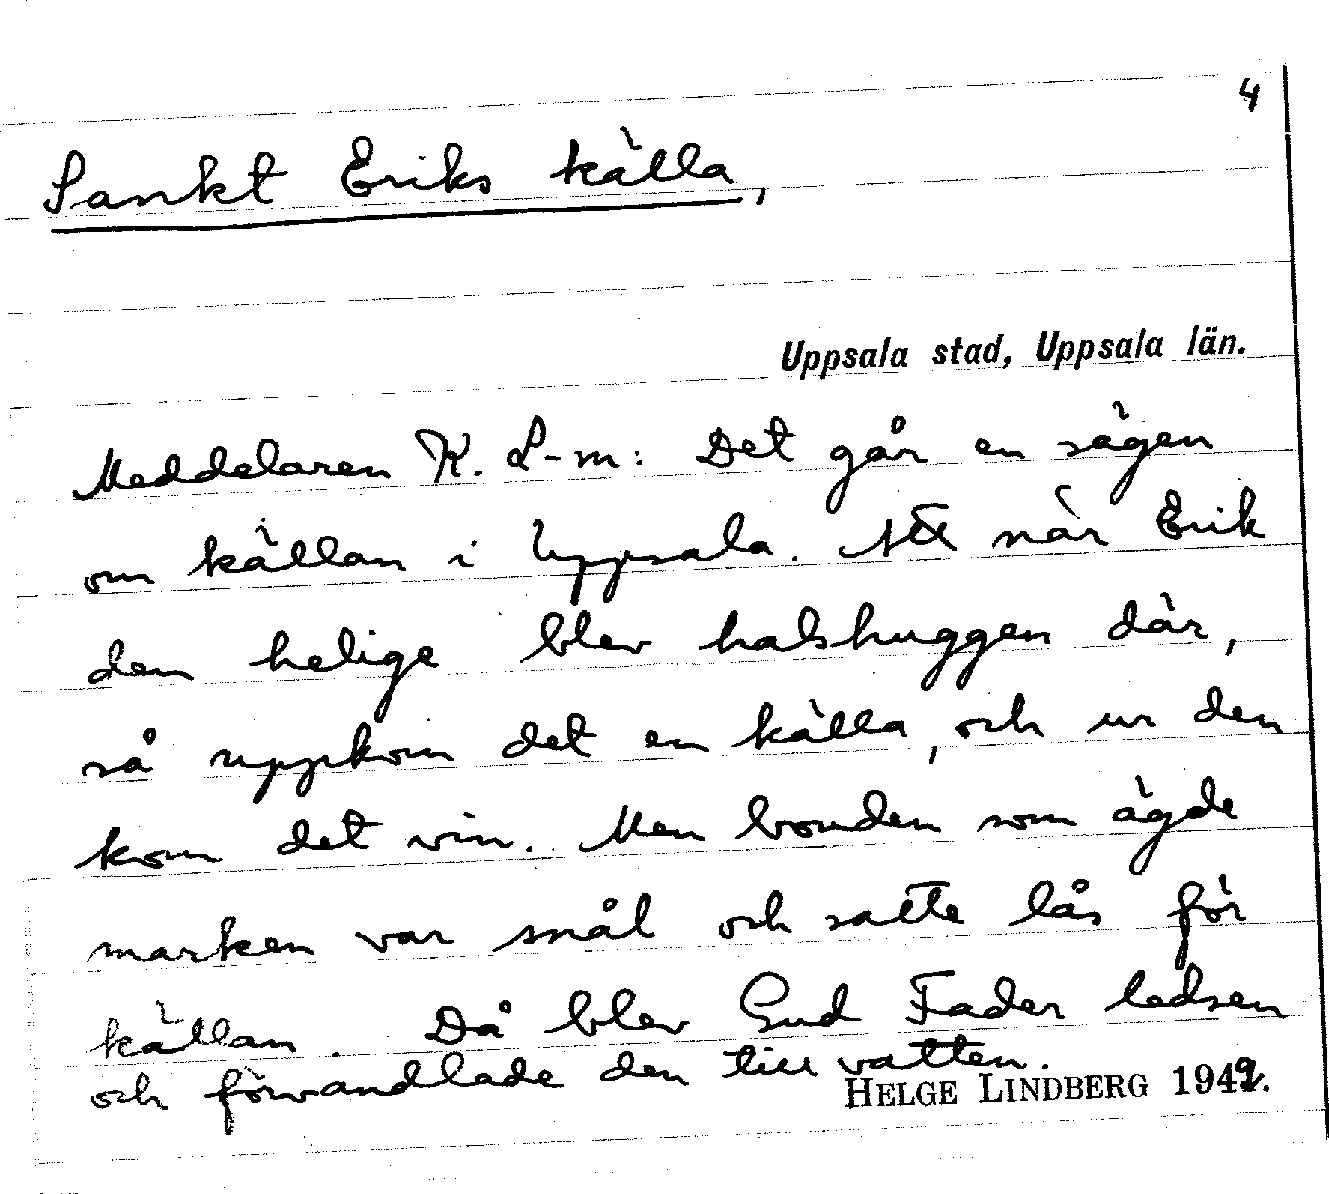 4
Sankt Eriks källa,
Uppsala stad, Uppsala län.
Meddelaren K. L-m: Det går en sägen
om källan i Uppsala. Att när Erik
den helige blev halshuggen där,
så uppkom det en källa, och ur den
kom det vin. Men bonden som ägde
marken var snål och satte lås för
källan. Då blev Gud Fader ledsen
och förvandlade den till vatten.
HELGE LINDBERG 1949.